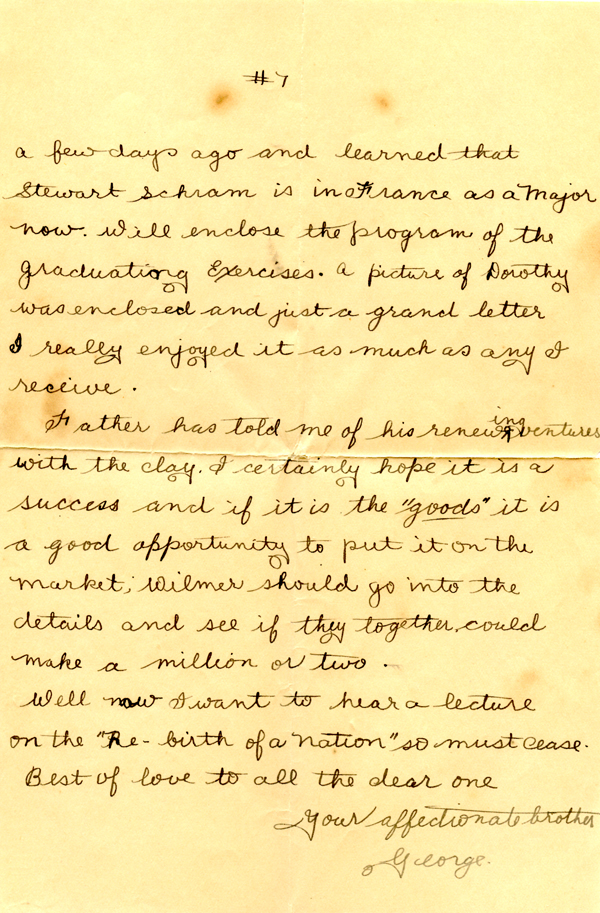 #7
a few days ago and learned that
Stewart Schram is in France as a Major
now. Will enclose the program of the
Graduating Exercises. A picture of Dorothy
was enclosed and just a grand letter
I really enjoyed it as much as any I
receive.
Father has told me of his renewing ventures
with the clay. I certainly hope it is a
success and if it is the "goods" it is
a good opportunity to put it on the
market; Wilmer should go into the
details and see if they together could
make a million or two.
Well now I want to hear a lecture
on the "Re-birth of a Nation" so must cease.
Best of love to all the dear one
Your affectionate brother
George.